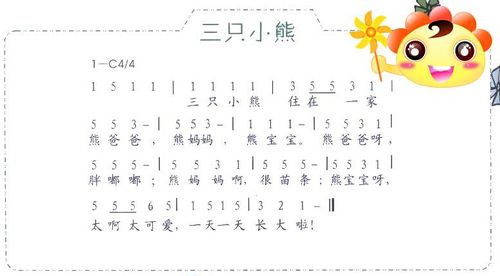 三只小熊
1—C4/4
1 5 1 1 | 1 1 1 1 | 3 5 5 3 1 |
三只小熊 住在 一家
5 5 3— | 5 5 3— | 1 1 1— | 5 5 3 1 |
熊爸爸，熊妈妈，熊宝宝。熊爸爸呀，
5 5 3— | 5 5 3 1 | 5 5 3— | 5 5 3 1
胖嘟嘟；熊妈妈啊，很苗条；熊宝宝呀，
5 5 5 6 5 | 1 5 1 5 | 3 2 1—‖
太啊太可爱，一天一天长大啦！